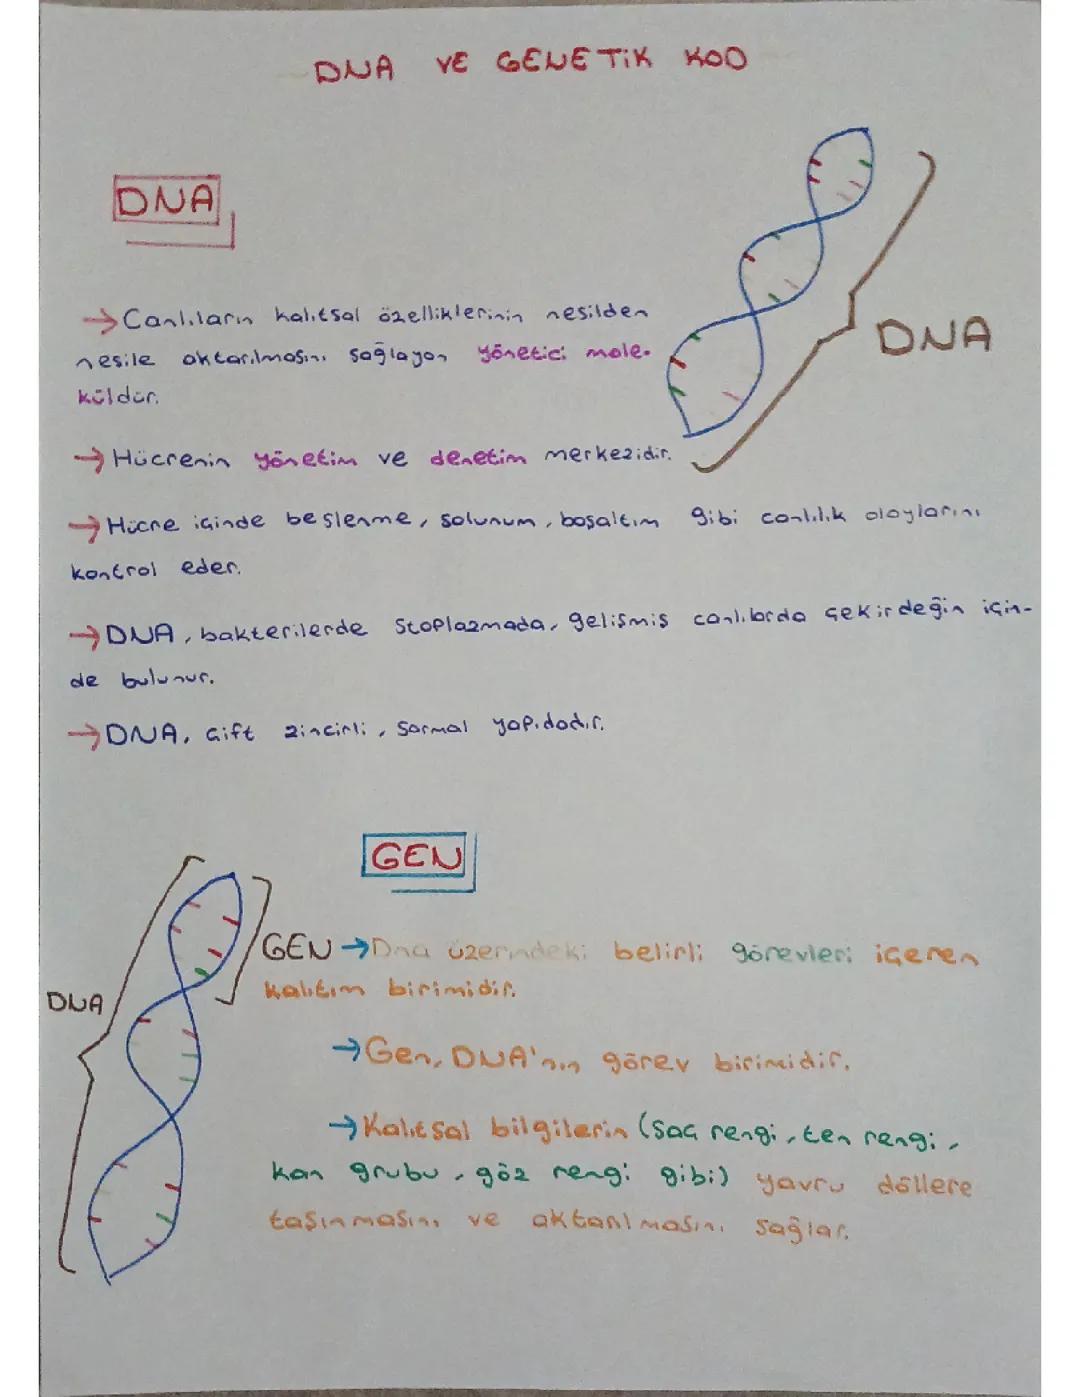 DNA VE GENETİK KOD
DNA
→Canlıların kalıtsal özelliklerinin nesilden
nesile aktarılmasını sağlayan yönetici mole-
küldür.
DNA
→Hücrenin yönetim ve denetim merkezidir.
→Hücre içinde beslenme, solunum, boşaltım gibi canlılık olaylarını
kontrol eder.
→DNA, bakterilerde stoplazmada, gelişmiş canlılarda çekirdeğin için-
de bulunur.
→DNA, çift zincirli, sarmal yapıdadır.
GEN
DNA
GEN →Dna üzerindeki belirli görevleri içeren
kalıtım birimidir.
→Gen, DNA'nın görev birimidir.
→Kalıtsal bilgilerin (saç rengi, ten rengi,
kan grubu, göz rengi gibi) yavru döllere
taşınmasını ve aktarılmasını sağlar.